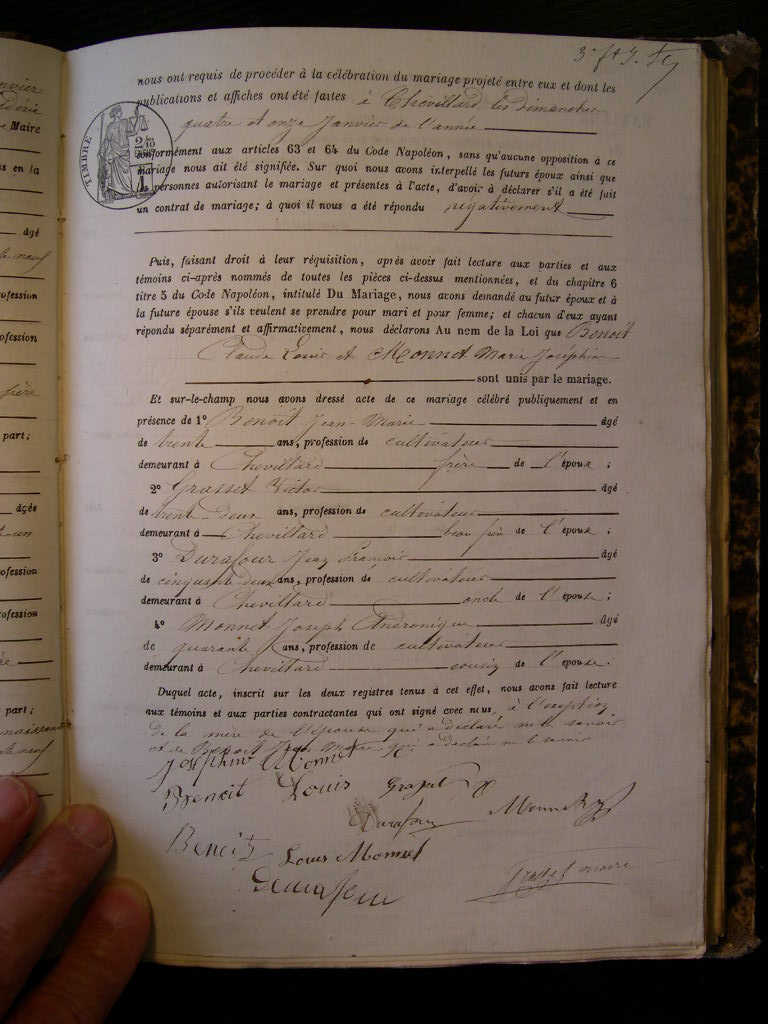 nous ont requis de procéder à la célébration du mariage projeté entre eux et dont les
publications et affiches ont été faites à Chevillard, les dimanches
quatre et onze Janvier de l'année
conformément aux articles 63 et 64 du Code Napoléon, sans qu'aucune opposition à ce
mariage nous ait été signifiée. Sur quoi nous avons interpellé les futurs époux ainsi que
les personnes autorisant le mariage et présentes à l'acte, d'avoir à déclarer s'il a été fait
un contrat de mariage; à quoi il nous a été répondu négativement
TIMBRE
Puis, faisant droit à leur réquisition, après avoir fait lecture aux parties et aux
témoins ci-après nommés de toutes les pièces ci-dessus mentionnées, et du chapitre 6
titre 5 du Code Napoléon, intitulé Du Mariage, nous avons demandé au futur époux et à
la future épouse s'ils veulent se prendre pour mari et pour femme; et chacun d'eux ayant
répondu séparément et affirmativement, nous déclarons Au nom de la Loi que Benoit
Claude Louis et Monnet Marie Joséphine
sont unis par le mariage.
Et sur-le-champ nous avons dressé acte de ce mariage célébré publiquement et en
présence de 1° Benoit Jean-Marie âgé
de trente ans, profession de cultivateur
demeurant à Chevillard frère de l'époux ;
2° Grasset Victor âgé
de trente-deux ans, profession de cultivateur
demeurant à Chevillard beau frère de l'époux ;
3° Durafour Jean François âgé
de cinquante deux ans, profession de cultivateur
demeurant à Chevillard oncle de l'épouse ;
4° Monnet Joseph Andronique âgé
de quarante ans, profession de cultivateur
demeurant à Chevillard cousin de l'épouse.
Duquel acte, inscrit sur les deux registres tenus à cet effet, nous avons fait lecture
aux témoins et aux parties contractantes qui ont signé avec nous, à l'exception
de la mère de l'épouse qui a déclaré ne le savoir
et de Benoit Jean Marie qui a déclaré ne le savoir
Joséphine Monnet
Benoit Louis
Durafour
Benoit
Louis Monnet
Durafour
maire